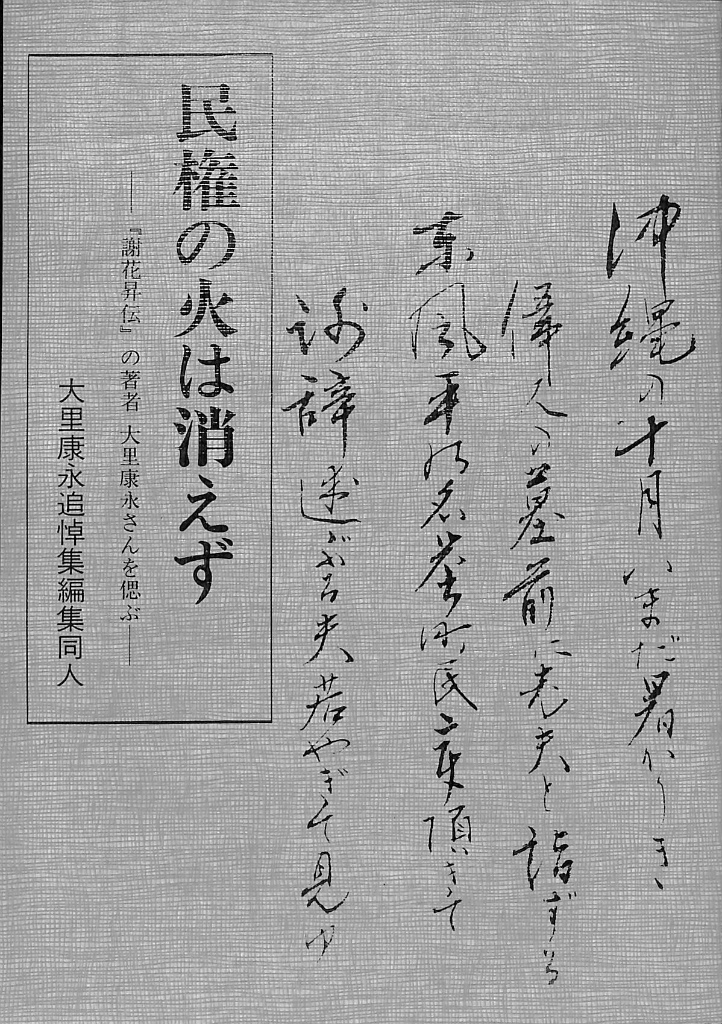 沖縄の十月いまだ暑かりき
偉人の墓前に老夫と詣ずる
東風平の名誉町民章頂きて
謝辞述ぶる夫若やぎて見ゆ
民権の火は消えず
――『謝花昇伝』の著者 大里康永さんを偲ぶ――
大里康永追悼集編集同人